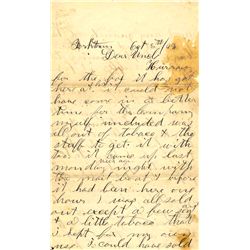 Oct 2nd / 18
Dear Uncl
Hurraw
for the boy it has got
here a. t. i could not
have come in a better
time for the town, my
myself included was
all out of tobaco & the
stuff to get it with
too. it came up last
monday night on
the mail boat & before
it had ben here one
hour I was all sold
out except a few
& a little tobaco that
i kept for my own
use. I could have sold